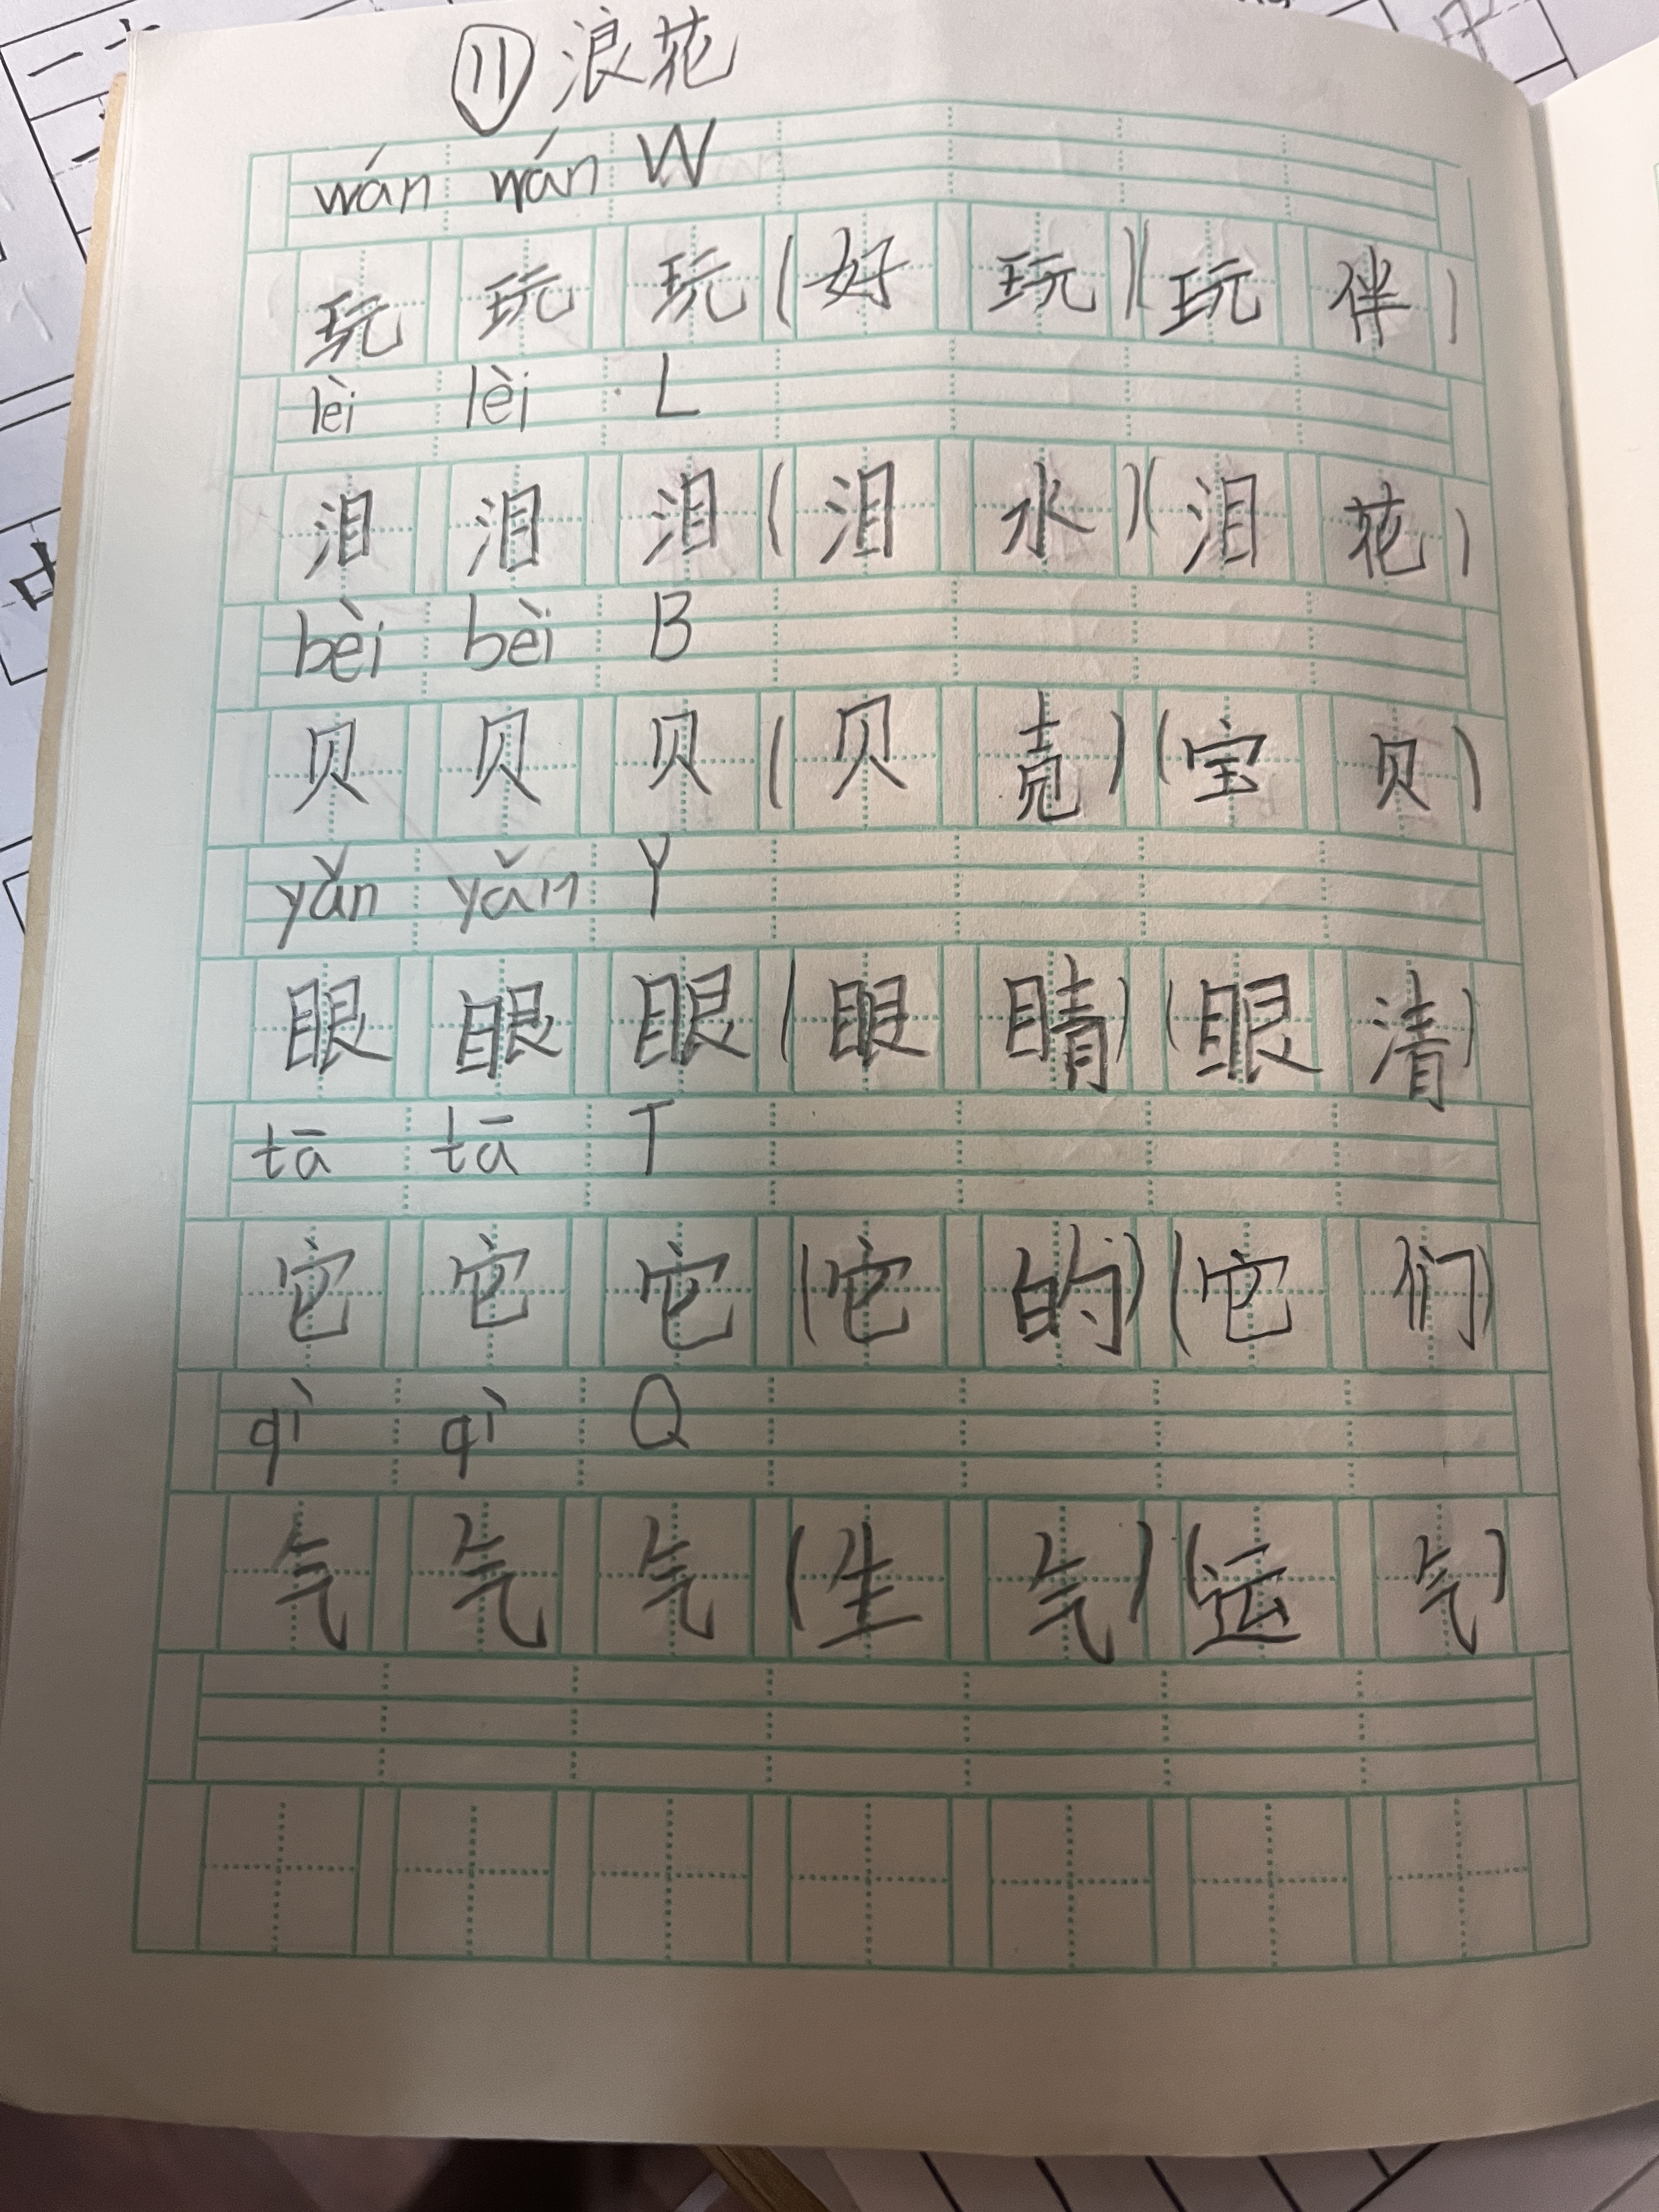 ⑪ 浪花
wán wán W
玩 玩 玩 (好 玩)(玩 伴)
lèi lèi L
泪 泪 泪 (泪 水)(泪 花)
bèi bèi B
贝 贝 贝 (贝 壳)(宝 贝)
yǎn yǎn Y
眼 眼 眼 (眼 睛)(眼 清)
tā tā T
它 它 它 (它 的)(它 们)
qì qì Q
气 气 气 (生 气)(运 气)